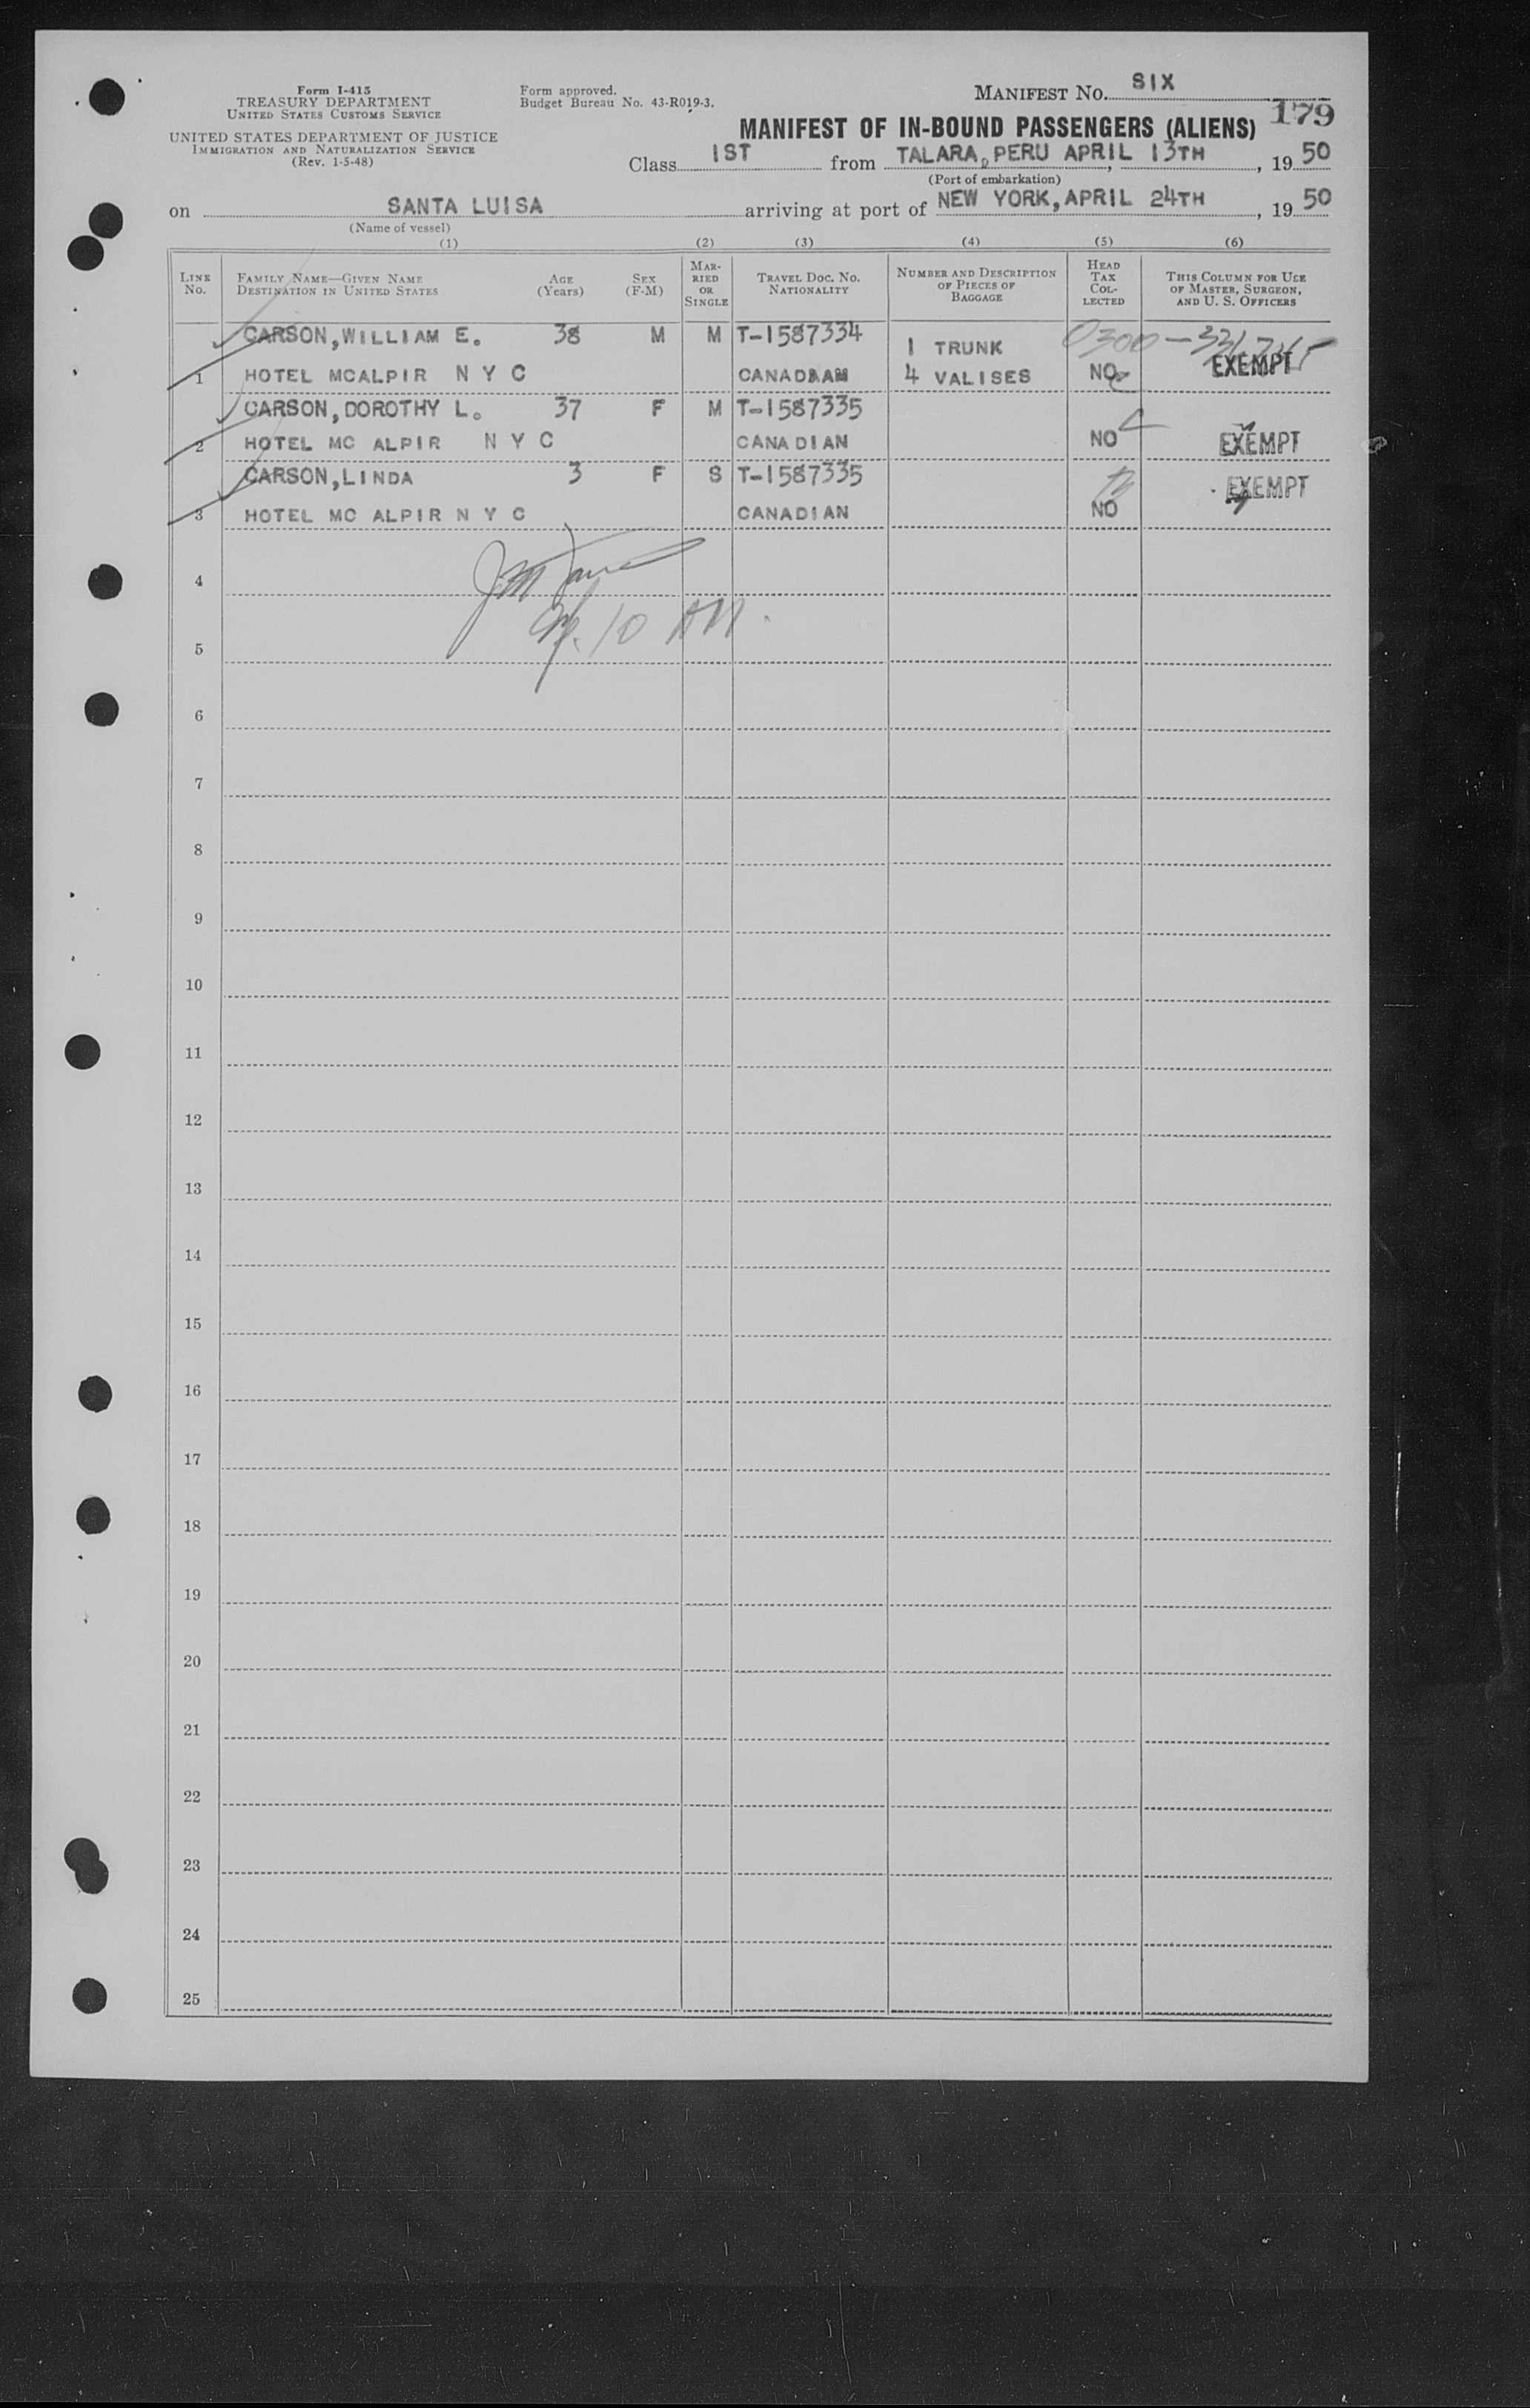 Form I-415
TREASURY DEPARTMENT
UNITED STATES CUSTOMS SERVICE
UNITED STATES DEPARTMENT OF JUSTICE
IMMIGRATION AND NATURALIZATION SERVICE
(Rev. 1-5-48)
Form approved.
Budget Bureau No. 43-R019-3.
MANIFEST NO. SIX
179
MANIFEST OF IN-BOUND PASSENGERS (ALIENS)
Class 1ST from TALARA, PERU APRIL 13TH, 1950
(Port of embarkation)
on SANTA LUISA arriving at port of NEW YORK, APRIL 24TH, 1950
(Name of vessel)
(1) (2) (3) (4) (5) (6)
LINE NO. FAMILY NAME—GIVEN NAME DESTINATION IN UNITED STATES AGE (Years) SEX (F-M) MARRIED OR SINGLE TRAVEL DOC. NO. NATIONALITY NUMBER AND DESCRIPTION OF PIECES OF BAGGAGE HEAD TAX COLLECTED THIS COLUMN FOR USE OF MASTER, SURGEON, AND U. S. OFFICERS
CARSON, WILLIAM E. 38 M M T-1587334 1 TRUNK 0300
1 HOTEL MCALPIR N Y C CANADAAM 4 VALISES NO EXEMPT
CARSON, DOROTHY L. 37 F M T-1587335
2 HOTEL MC ALPIR N Y C CANADIAN NO EXEMPT
CARSON, LINDA 3 F S T-1587335 EXEMPT
3 HOTEL MC ALPIR N Y C CANADIAN NO
4
10 AM.
5
6
7
8
9
10
11
12
13
14
15
16
17
18
19
20
21
22
23
24
25